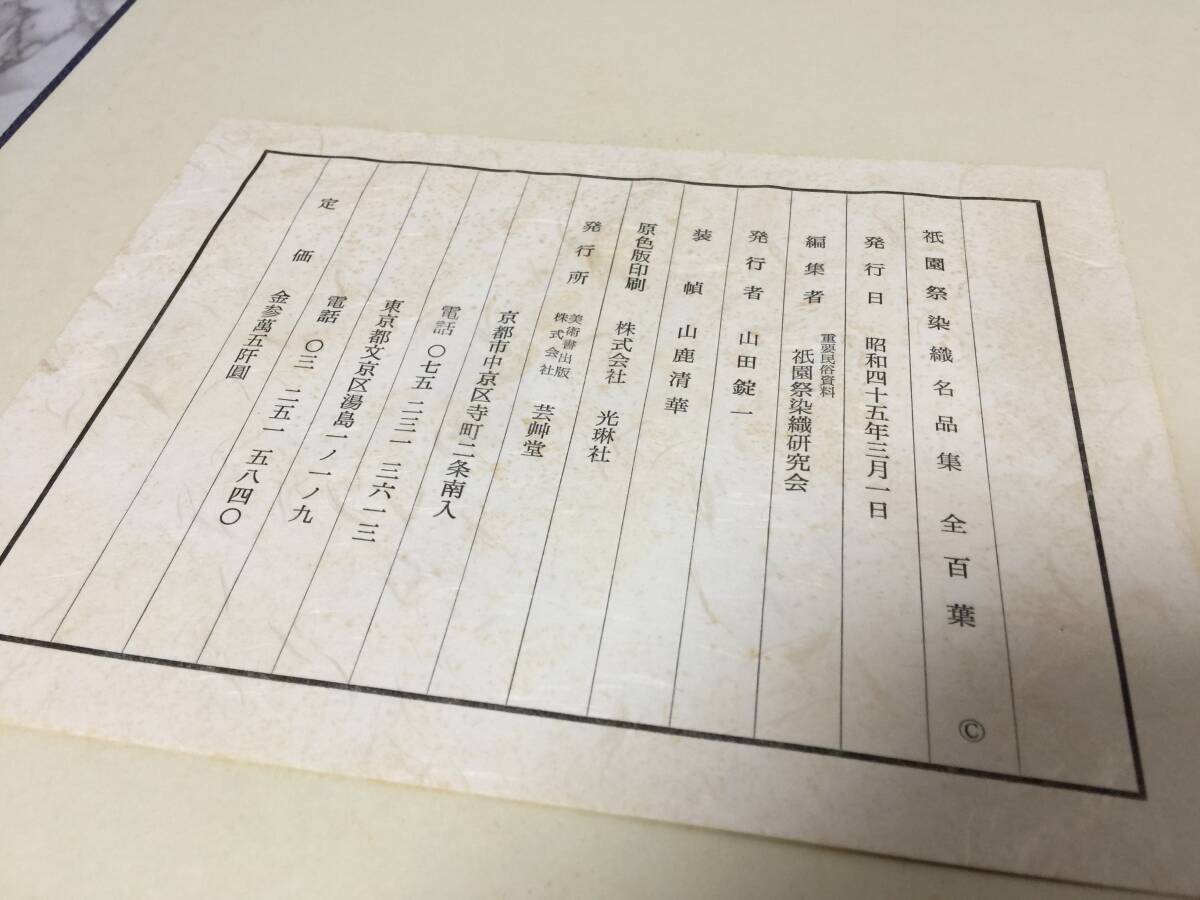 祇園祭染織名品集 全百葉 ©
発行日 昭和四十五年三月一日
編集者 重要民俗資料 祇園祭染織研究会
発行者 山田錠一
装幀 山鹿清華
原色版印刷 株式会社 光琳社
発行所 美術書出版 株式会社 芸艸堂
京都市中京区寺町二条南入
電話 〇七五 二三一 三六一三
東京都文京区湯島一ノ一ノ九
電話 〇三 二五一 五八四〇
定価 金参萬五阡圓